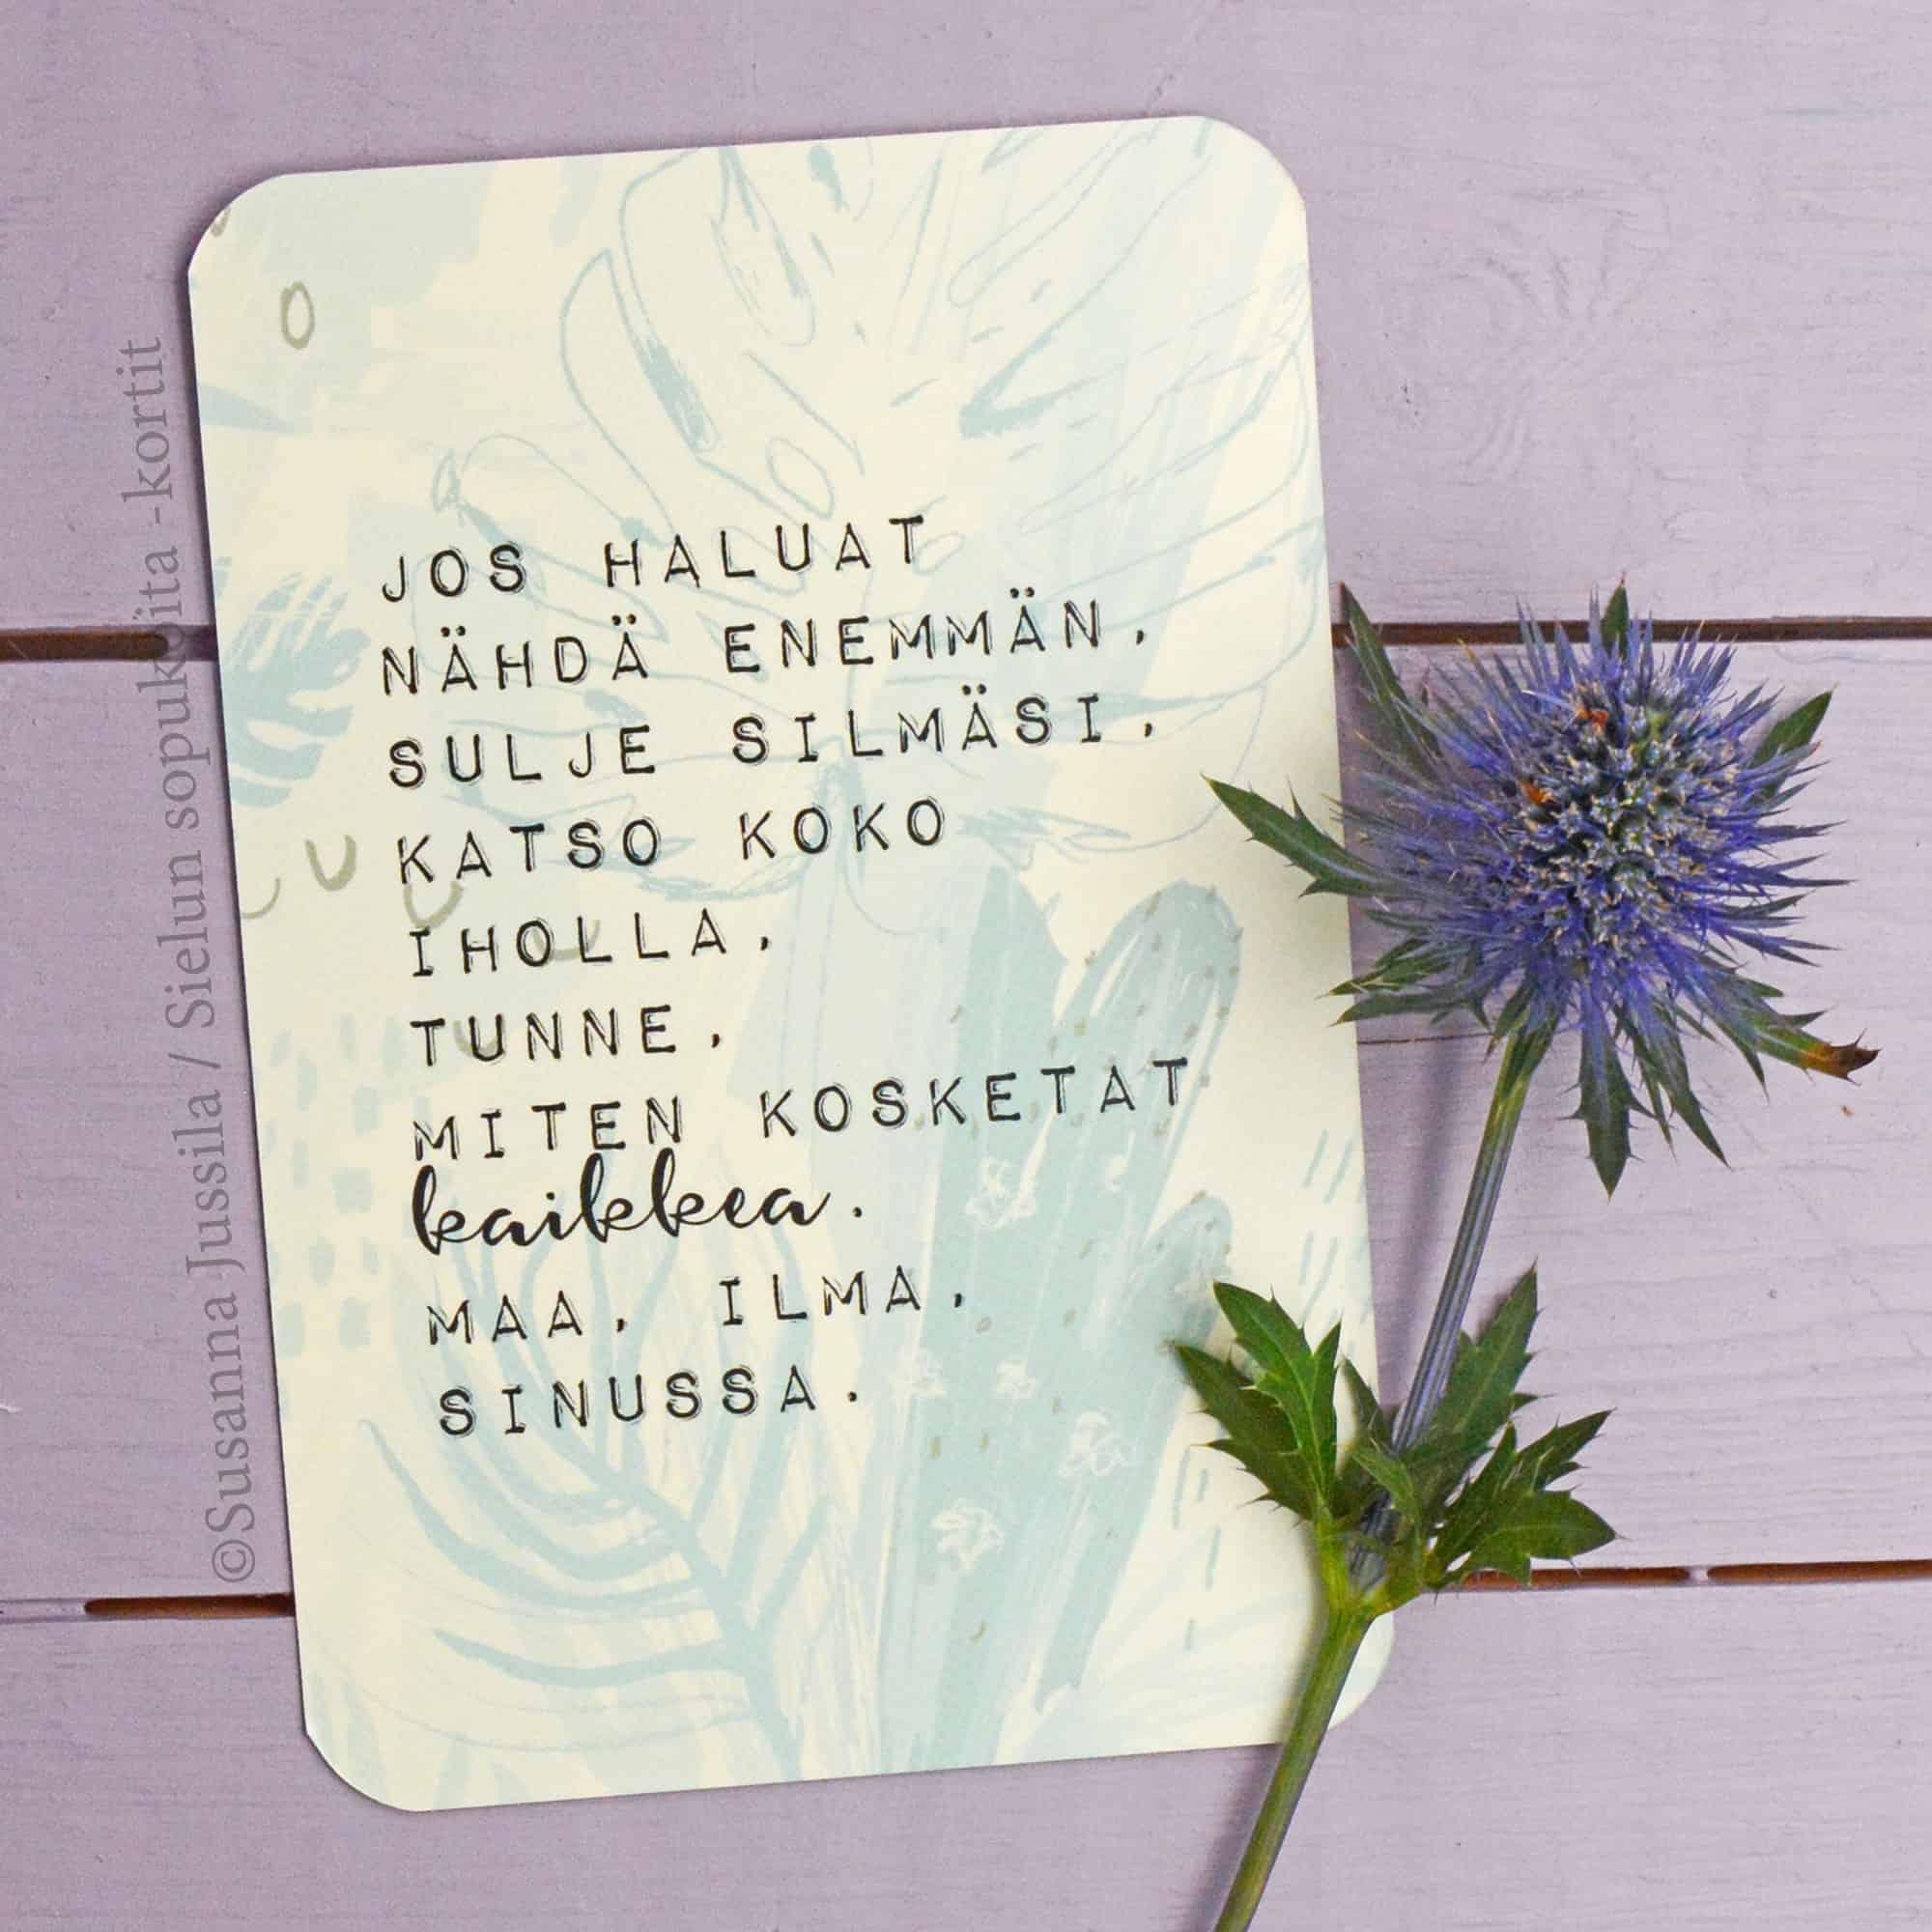 JOS HALUAT
NÄHDÄ ENEMMÄN,
SULJE SILMÄSI,
KATSO KOKO
IHOLLA,
TUNNE,
MITEN KOSKETAT
kaikkea.
MAA, ILMA,
SINUSSA.
©Susanna Jussila / Sielun sopukoita -kortit